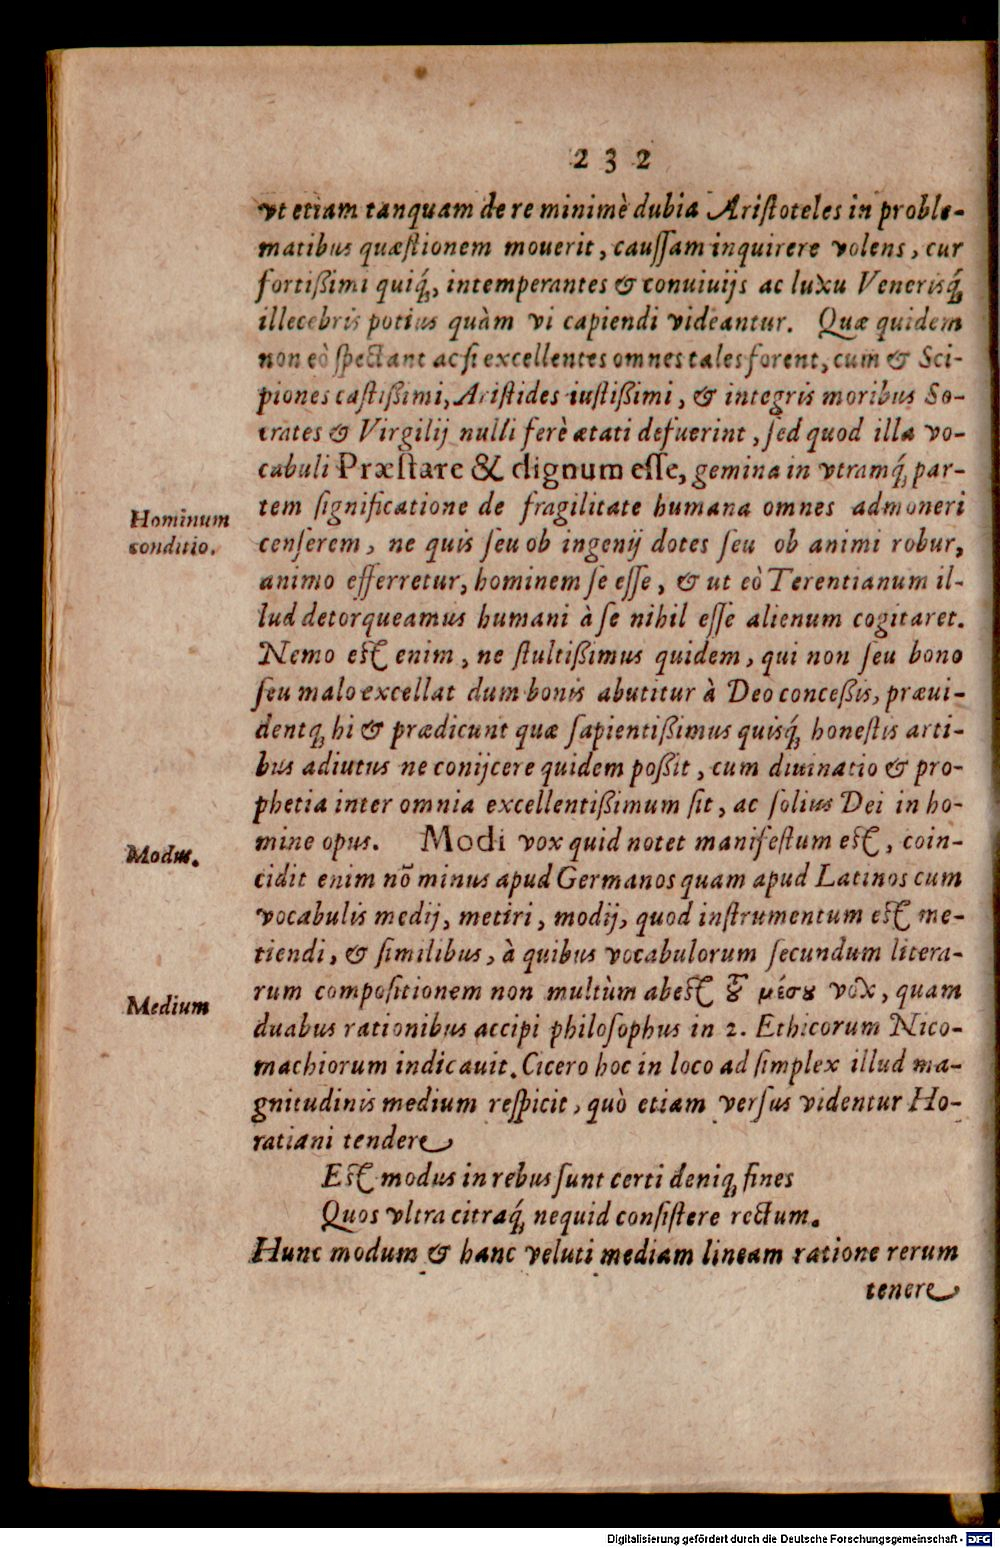 232
vt etiam tanquam de re minimè dubia Ariſtoteles in proble-
matibus quæſtionem mouerit, cauſſam inquirere volens, cur
fortißimi quiq́;, intemperantes & conuiuijs ac luxu Venerisq́;
illecebris potius quàm vi capiendi videantur. Quæ quidem
non eò ſpectant ac ſi excellentes omnes tales forent, cum & Sci-
piones caſtißimi, Ariſtides iuſtißimi, & integris moribus So-
crates & Virgilij nulli ferè ætati defuerint, ſed quod illa vo-
cabuli Præſtare & dignum eſſe, gemina in vtramq́; par-
tem ſignificatione de fragilitate humana omnes admoneri
Hominum
conditio.
cenſerem, ne quis ſeu ob ingenij dotes ſeu ob animi robur,
animo efferretur, hominem ſe eſſe, & ut eò Terentianum il-
lud detorqueamus humani à ſe nihil eſſe alienum cogitaret.
Nemo eſt enim, ne ſtultißimus quidem, qui non ſeu bono
ſeu malo excellat dum bonis abutitur à Deo conceßis, præui-
dentq; hi & prædicunt quæ ſapientißimus quisq́; honeſtis arti-
bus adiutus ne conijcere quidem poßit, cum diuinatio & pro-
phetia inter omnia excellentißimum ſit, ac ſolius Dei in ho-
Modus.
mine opus. Modi vox quid notet manifeſtum eſt, coin-
cidit enim nō minus apud Germanos quam apud Latinos cum
vocabulis medij, metiri, modij, quod inſtrumentum eſt me-
tiendi, & ſimilibus, à quibus vocabulorum ſecundum litera-
Medium
rum compoſitionem non multùm abeſt τȣ͂ μέσȣ vox, quam
duabus rationibus accipi philoſophus in 2. Ethicorum Nico-
machiorum indicauit. Cicero hoc in loco ad ſimplex illud ma-
gnitudinis medium reſpicit, quò etiam verſus videntur Ho-
ratiani tendere
Eſt modus in rebus ſunt certi deniq; fines
Quos vltra citraq́; nequid conſiſtere rectum.
Hunc modum & hanc veluti mediam lineam ratione rerum
tenere
Digitalisierung gefördert durch die Deutsche Forschungsgemeinschaft - DFG